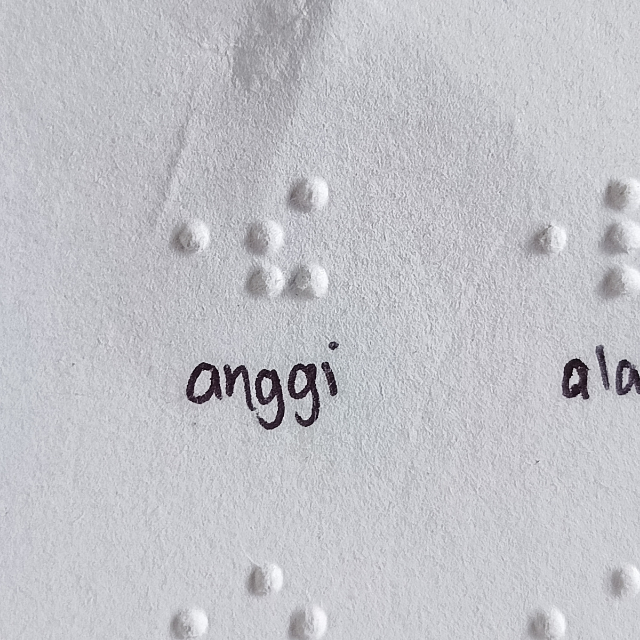 anggi ala